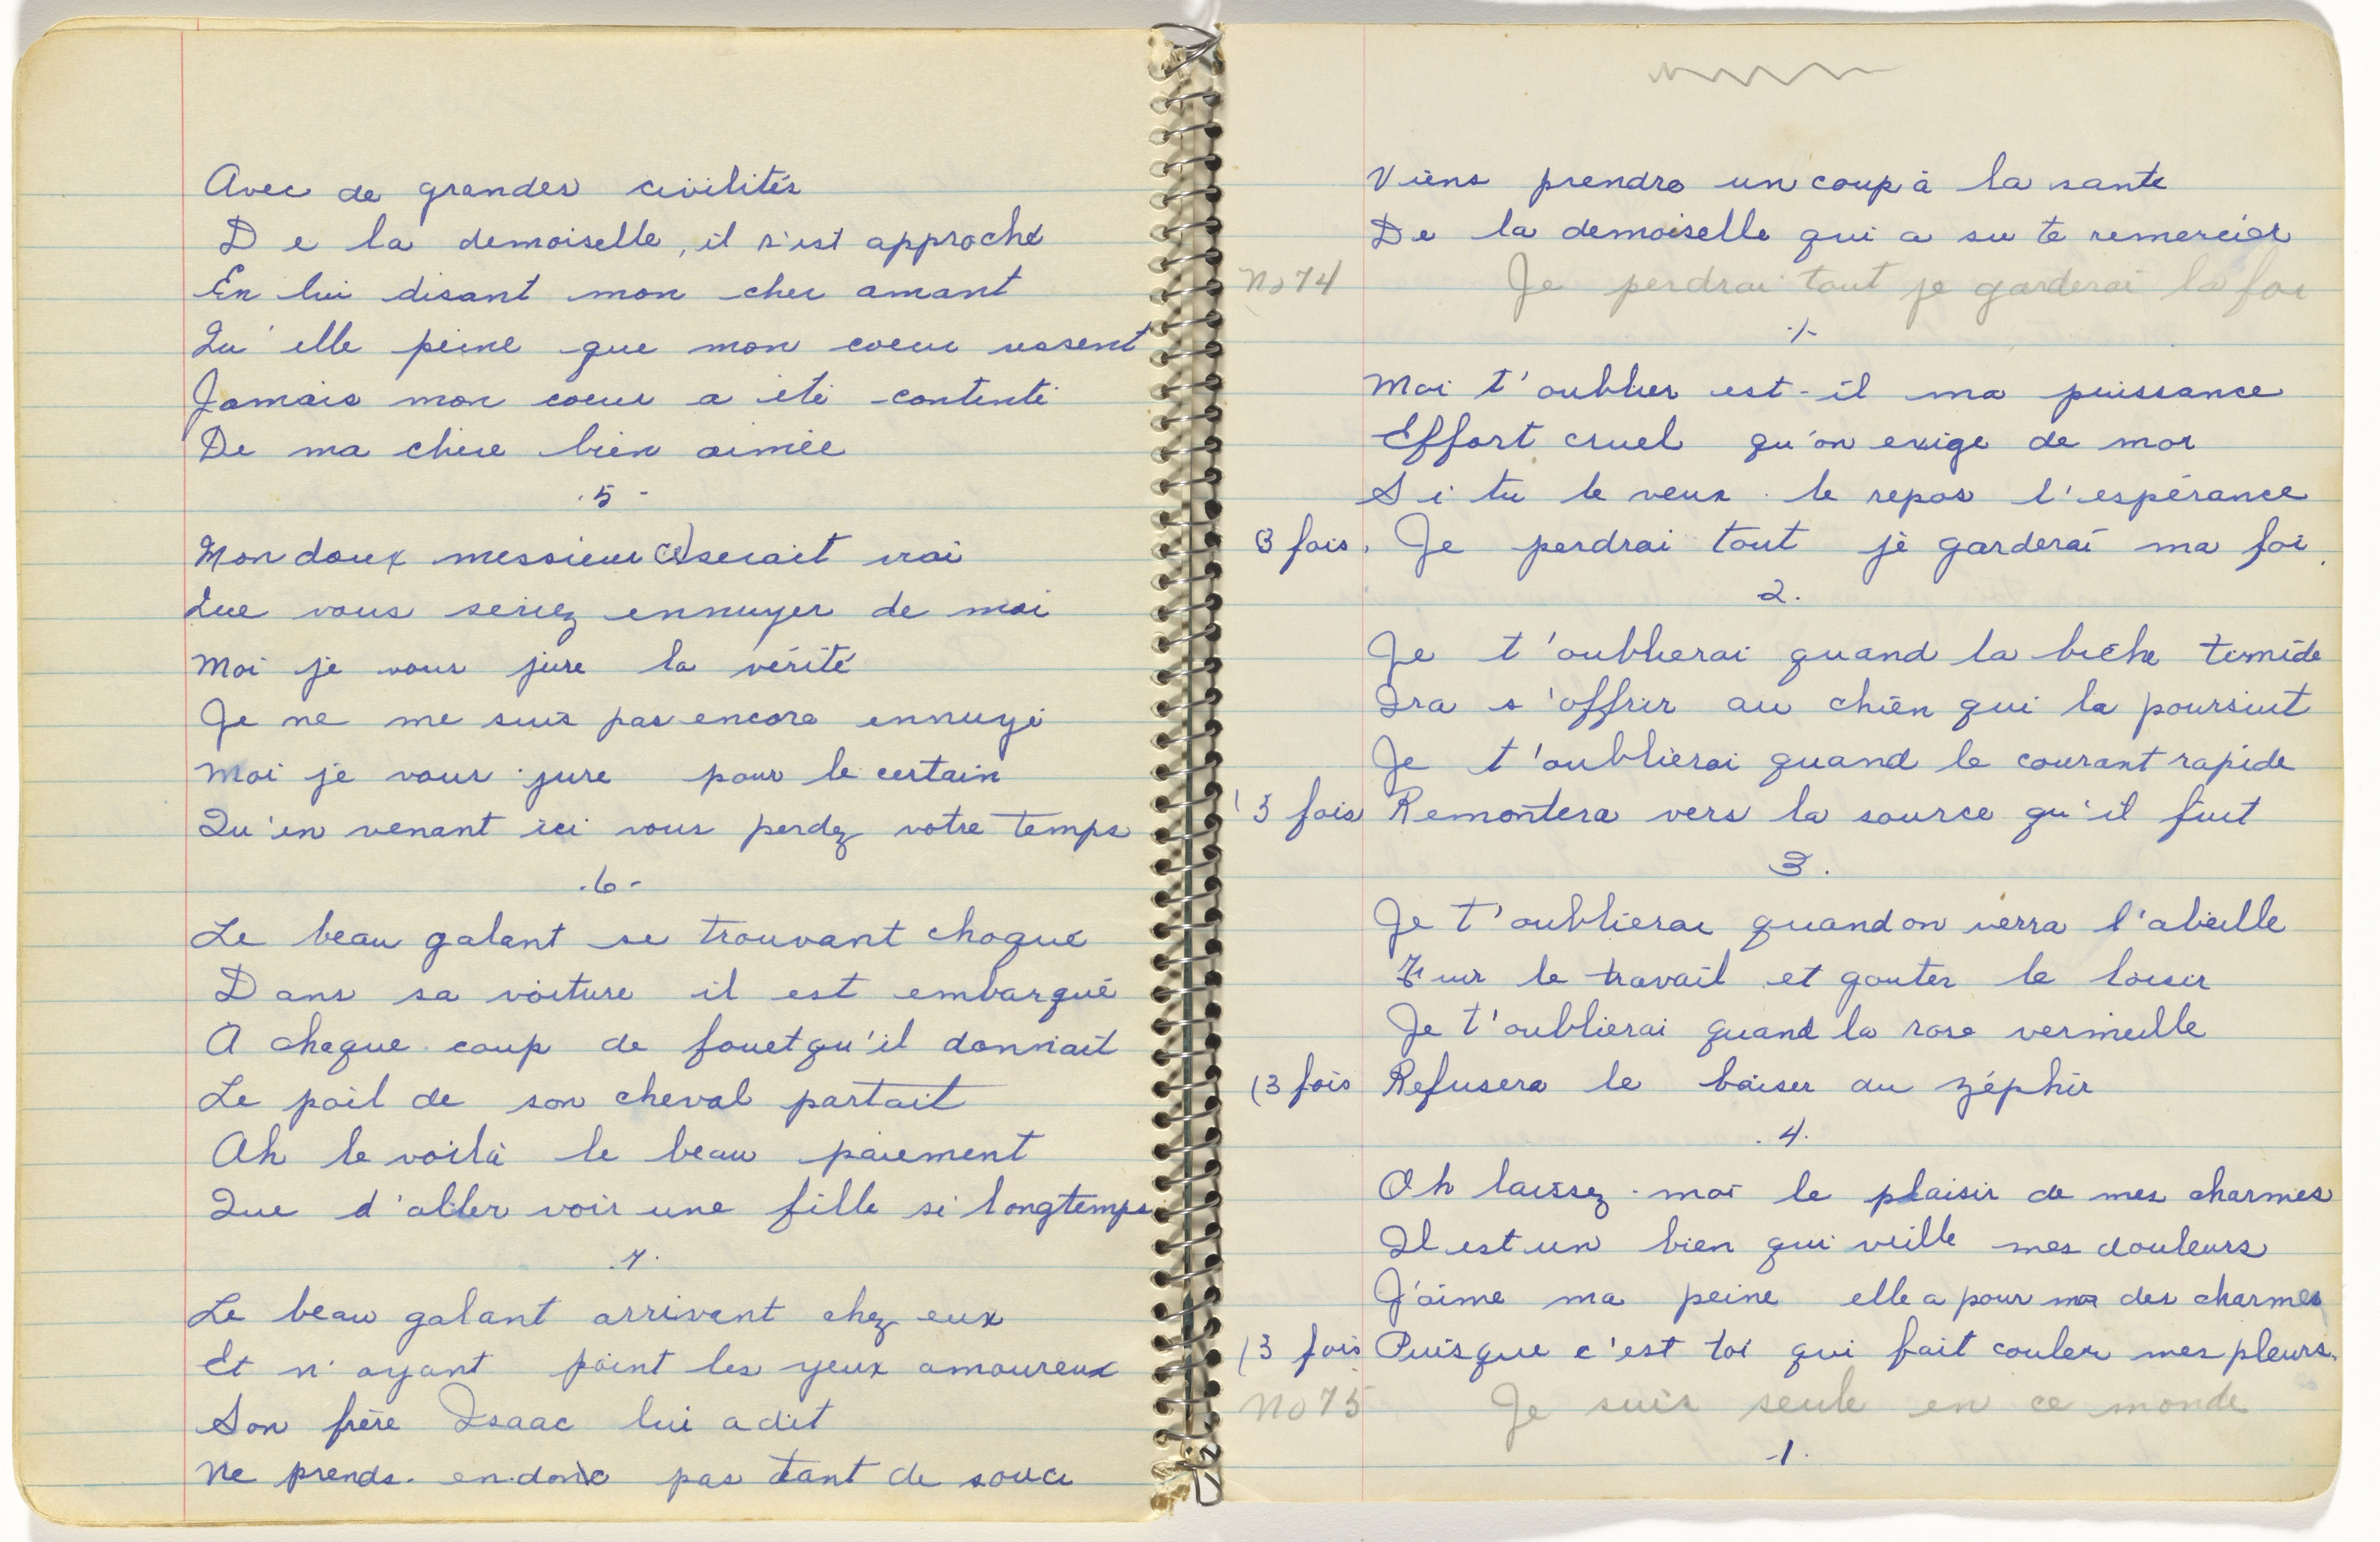 Avec de grandes civilités
De la demoiselle, il s'est approché
En lui disant mon cher amant
Qu'elle peine que mon coeur ressent
Jamais mon coeur a été contenté
De ma chère bien aimée
.5-
Mon doux messieur ce serait vrai
Que vous seriez ennuyer de moi
Moi je vous jure la vérité
Je ne me suis pas encore ennuyé
Moi je vous jure pour le certain
Qu'en venant ici vous perdez votre temps
.6-
Le beau galant se trouvant choqué
Dans sa voiture il est embarqué
A chaque coup de fouet qu'il donnait
Le poil de son cheval partait
Ah le voilà le beau paiement
Que d'aller voir une fille si longtemps
.7.
Le beau galant arrivant chez eux
Et n'ayant point les yeux amoureux
Son frère Isaac lui a dit
Ne prends-en donc pas tant de souci
Viens prendre un coup à la santé
De la demoiselle qui a su te remercier
No 74 Je perdrai tout je garderai la foi
-1-
Moi t'oublier est-il ma puissance
Effort cruel qu'on exige de moi
Si tu le veux le repos l'espérance
3 fois. Je perdrai tout je garderai ma foi.
2.
Je t'oublierai quand la biche timide
Ira s'offrir au chien qui la poursuit
Je t'oublierai quand le courant rapide
(3 fois Remontera vers la source qu'il fuit
3.
Je t'oublierai quand on verra l'abeille
Fuir le travail et gouter le loisir
Je t'oublierai quand la rose vermeille
(3 fois Refusera le baiser du zéphir
.4.
Oh laissez-moi le plaisir de mes charmes
Il est un bien qui veille mes douleurs
J'aime ma peine elle a pour moi des charmes
(3 fois Puisque c'est toi qui fait couler mes pleurs.
No 75 Je suis seule en ce monde
-1.